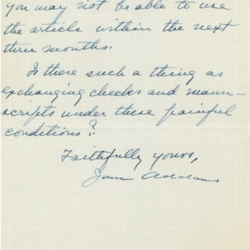 you may not be able to use
the article within the next
three months.
Is there such a thing as
exchanging checks and manu-
scripts under these painful
conditions?
Faithfully yours,
Jane Addams